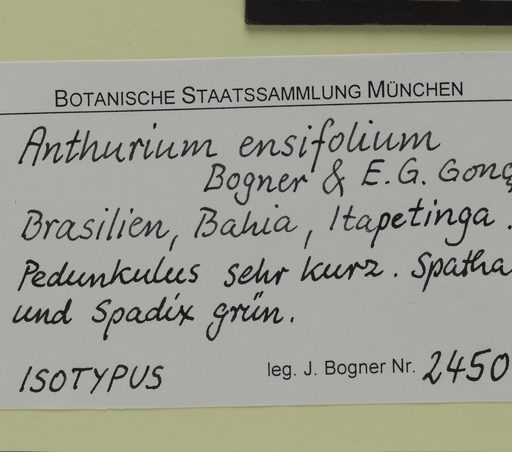 BOTANISCHE STAATSSAMMLUNG MÜNCHEN
Anthurium ensifolium
Bogner & E.G. Gonç
Brasilien, Bahia, Itapetinga.
Pedunkulus sehr kurz. Spatha
und Spadix grün.
ISOTYPUS leg. J. Bogner Nr. 2450